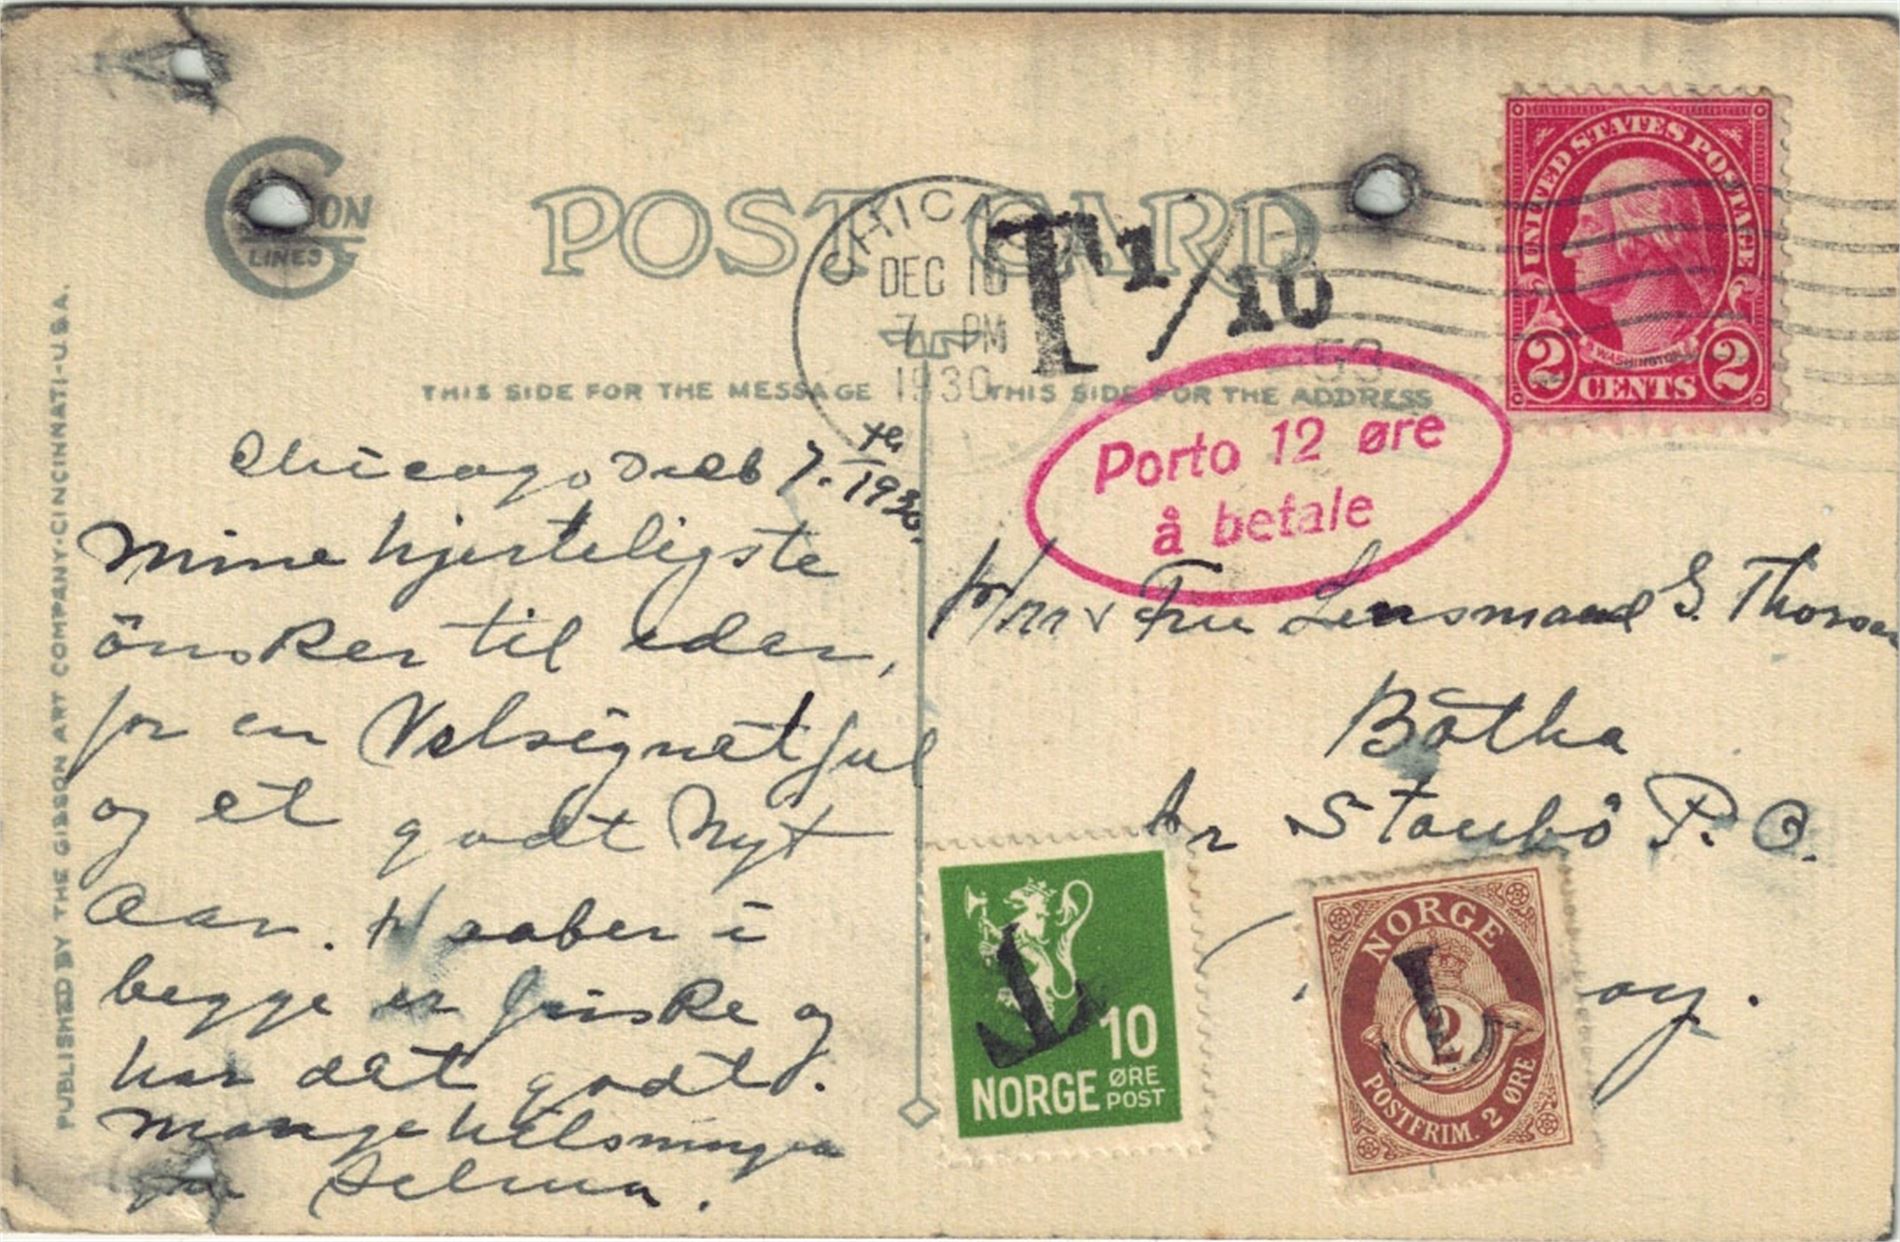 GIBSON
LINES
POST CARD
CHICAGO
DEC 10
7 PM
1930
T 1/10
UNITED STATES POSTAGE
WASHINGTON
2 CENTS 2
THIS SIDE FOR THE MESSAGE
THIS SIDE FOR THE ADDRESS
Porto 12 øre
å betale
PUBLISHED BY THE GIBSON ART COMPANY·CINCINNATI-U.S.A.
Chicago, Decb 7. th/1930.
Mine hjerteligste
önsker til eder,
for en Velsignet Jul
og et godt Nyt
Aar. Haaber i
begge er friske og
har det godt.
Mange hilsninger
Selma.
Hr v Fru Lensmand G. Thorsen
Båtka
Staubö P. O.
NORGE
10 ØRE
POST
T
NORGE
2
POSTFRIM. 2 ØRE
T